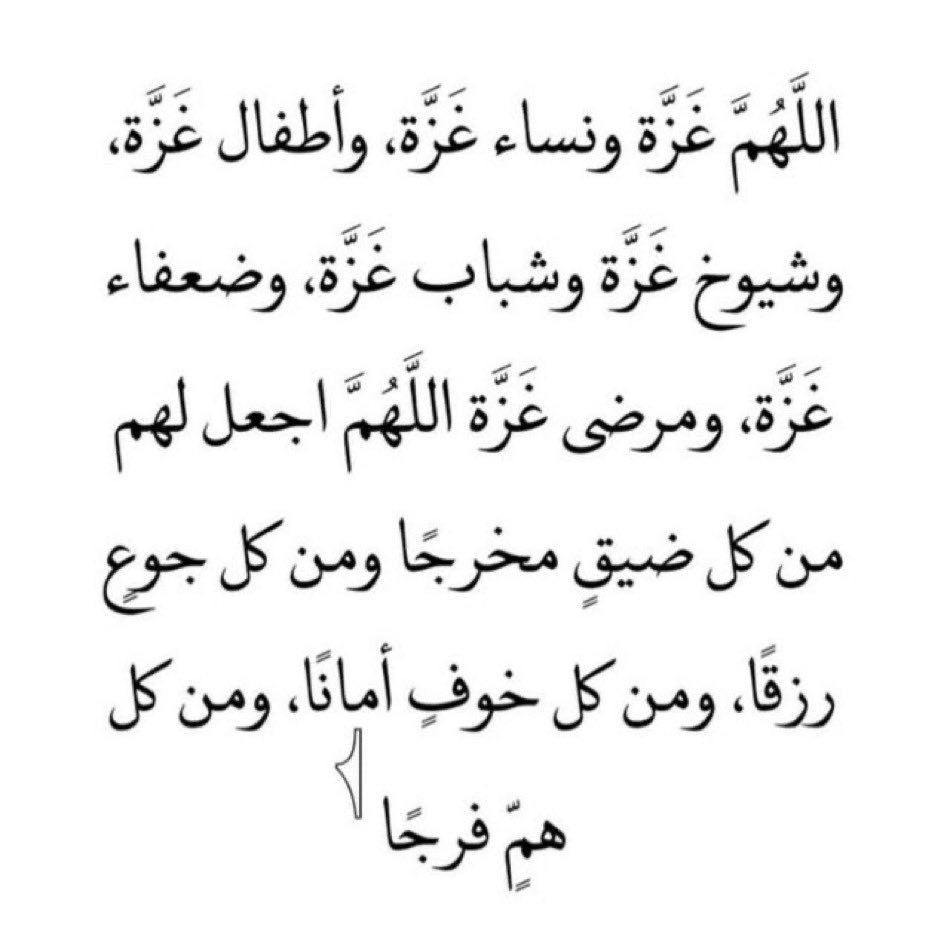 اللَّهُمَّ غَزَّة ونساء غَزَّة، وأطفال غَزَّة،
وشيوخ غَزَّة وشباب غَزَّة، وضعفاء
غَزَّة، ومرضى غَزَّة اللَّهُمَّ اجعل لهم
من كل ضيقٍ مخرجًا ومن كل جوعٍ
رزقًا، ومن كل خوفٍ أمانًا، ومن كل
همٍّ فرجًا